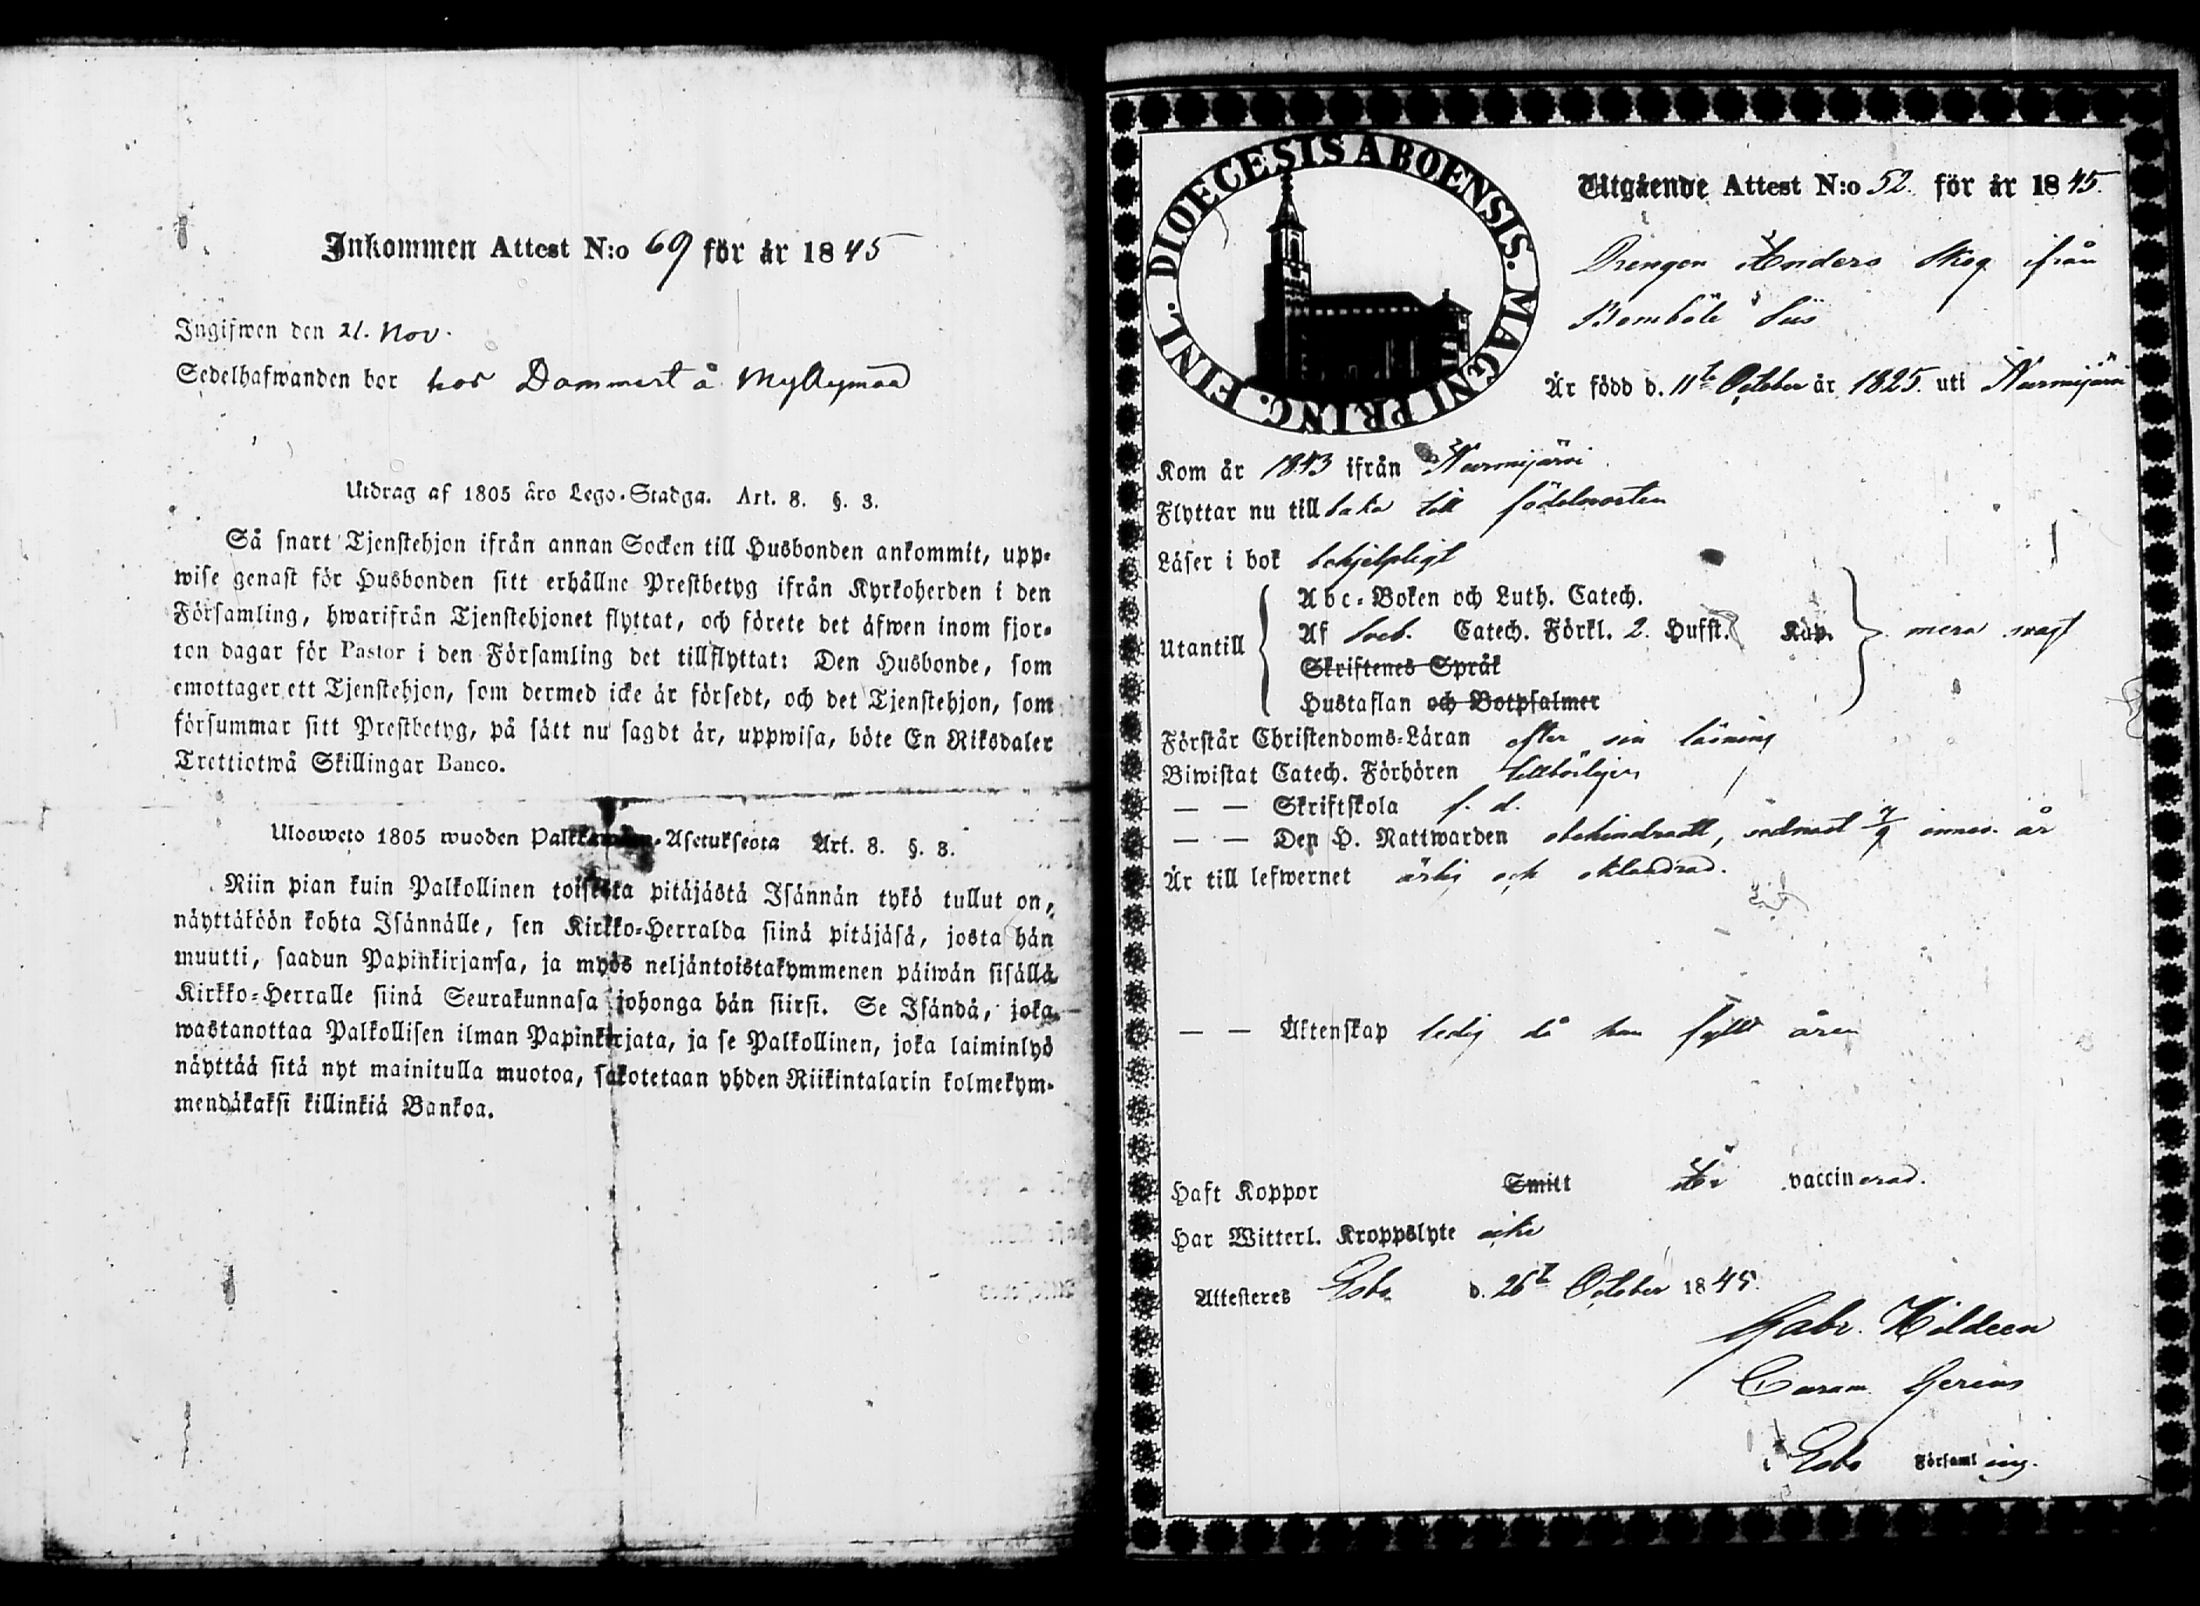 Inkommen Attest N:o 69 för år 1845
Ingifwen den 21. Nov.
Sedelhafwanden bor hos Dammert å Myllymaa
Utdrag af 1805 års Lego-Stadga. Art. 8. §. 3.
Så snart Tjenstehjon ifrån annan Socken till Husbonden ankommit, upp-
wise genast för Husbonden sitt erhållne Prestbetyg ifrån Kyrkoherden i den
Församling, hwarifrån Tjenstehjonet flyttat, och förete det äfwen inom fjor-
ton dagar för Pastor i den Församling det tillflyttat: Den Husbonde, som
emottager ett Tjenstehjon, som dermed icke är försedt, och det Tjenstehjon, som
försummar sitt Prestbetyg, på sätt nu sagdt är, uppwisa, böte En Riksdaler
Trettiotwå Skillingar Banco.
Ulosweto 1805 wuoden Palkka-Asetuksesta Art. 8. §. 3.
Niin pian kuin Palkollinen toisesta pitäjästä Isännän tykö tullut on,
näyttäköön kohta Isännälle, sen Kirkko-Herralda siinä pitäjäsä, josta hän
muutti, saadun Papinkirjansa, ja myös neljäntoistakymmenen päiwän sisällä
Kirkko-Herralle siinä Seurakunnasa johonga hän siirsi. Se Isändä, joka
wastanottaa Palkollisen ilman Papinkirjata, ja se Palkollinen, joka laiminlyö
näyttää sitä nyt mainitulla muotoa, sakotetaan yhden Riikintalarin kolmekym-
mendäkaksi killinkiä Bankoa.
DIOECESIS ABOENSIS. MAGNI PRINC. FINL.
Utgående Attest N:o 52. för år 1845.
Drengen Anders Skog ifrån
Bemböle
Är född d. 11te October år 1825. uti Nurmijärvi
Kom år 1843 ifrån Nurmijärvi
Flyttar nu tillbaka till födelseorten
Läser i bok behjelpligt
Utantill
Abc-Boken och Luth. Catech.
Af Sveb. Catech. Förkl. 2. Hufst. Kap. mera svagt
Skriftenes Språk
Hustaflan och Botpsalmer
Förstår Christendoms-Läran efter sin läsning
Biwistat Catech. Förhören tillbörligen
— — Skriftskola s. d.
— — Den H. Nattwarden obehindradt, sednast 7/9 innev. år
Är till lefwernet ärlig och oklandrad.
— — Äktenskap ledig då han fyllt åren
Haft Koppor Smitt Är vaccinerad.
Har Witterl. Kroppslyte icke
Attesteres Esbo d. 26te October 1845.
Gabr. Hildeen
Curam Gerens
i Esbo Församling.